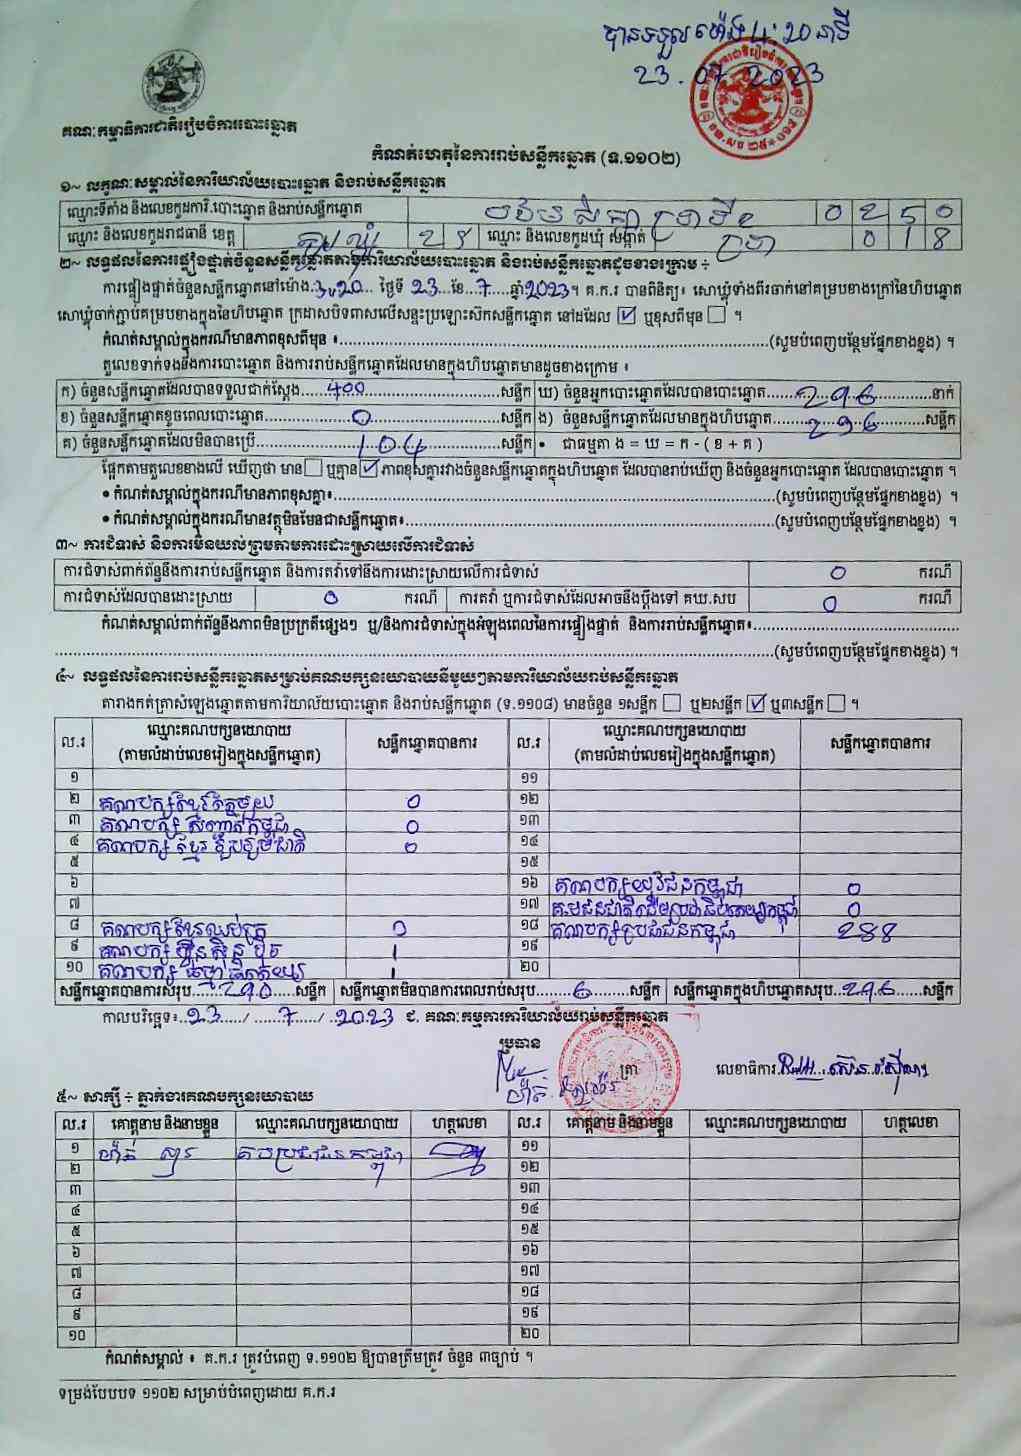 បានទទួល ម៉ោង 4:20 នាទី
23.07.2023
គណៈកម្មាធិការជាតិរៀបចំការបោះឆ្នោត
កំណត់ហេតុនៃការរាប់សន្លឹកឆ្នោត (ទ.១១០២)
១~ លក្ខណៈសម្គាល់នៃការិយាល័យបោះឆ្នោត និងរាប់សន្លឹកឆ្នោត
ឈ្មោះទីតាំង និងលេខកូដការិ.បោះឆ្នោត និងរាប់សន្លឹកឆ្នោត 0250
ឈ្មោះ និងលេខកូដរាជធានី ខេត្ត ឈ្មោះ និងលេខកូដឃុំ សង្កាត់ 018
២~ លទ្ធផលនៃការផ្ទៀងផ្ទាត់ចំនួនសន្លឹកឆ្នោតតាមការិយាល័យបោះឆ្នោត និងរាប់សន្លឹកឆ្នោតដូចខាងក្រោម ÷
ការផ្ទៀងផ្ទាត់ចំនួនសន្លឹកឆ្នោតនៅម៉ោង..3:20... ថ្ងៃទី 23...ខែ..7....ឆ្នាំ2023។ គ.ក.រ បានពិនិត្យ៖ សោឃ្លុំទាំងពីរចាក់នៅគម្របខាងក្រៅនៃហិបឆ្នោត
សោឃ្លុំចាក់ភ្ជាប់គម្របខាងក្នុងនៃហិបឆ្នោត ក្រដាសបិទពាសលើសន្ទះប្រឡោះស៊កសន្លឹកឆ្នោត នៅដដែល ☑ ឬខុសពីមុន ☐ ។
កំណត់សម្គាល់ក្នុងករណីមានភាពខុសពីមុន ៖...(សូមបំពេញបន្ថែមផ្នែកខាងខ្នង) ។
តួលេខទាក់ទងនឹងការបោះឆ្នោត និងការរាប់សន្លឹកឆ្នោតដែលមានក្នុងហិបឆ្នោតមានដូចខាងក្រោម ៖
ក) ចំនួនសន្លឹកឆ្នោតដែលបានទទួលជាក់ស្តែង...400...សន្លឹក ឃ) ចំនួនអ្នកបោះឆ្នោតដែលបានបោះឆ្នោត...296...នាក់
ខ) ចំនួនសន្លឹកឆ្នោតខូចពេលបោះឆ្នោត...0...សន្លឹក ង) ចំនួនសន្លឹកឆ្នោតដែលមានក្នុងហិបឆ្នោត...296...សន្លឹក
គ) ចំនួនសន្លឹកឆ្នោតដែលមិនបានប្រើ...104...សន្លឹក • ជាធម្មតា ង = ឃ = ក - ( ខ + គ )
ផ្អែកតាមតួលេខខាងលើ ឃើញថា មាន ☐ ឬគ្មាន ☑ ភាពខុសគ្នារវាងចំនួនសន្លឹកឆ្នោតក្នុងហិបឆ្នោត ដែលបានរាប់ឃើញ និងចំនួនអ្នកបោះឆ្នោត ដែលបានបោះឆ្នោត ។
• កំណត់សម្គាល់ក្នុងករណីមានភាពខុសគ្នា៖...(សូមបំពេញបន្ថែមផ្នែកខាងខ្នង) ។
• កំណត់សម្គាល់ក្នុងករណីមានវត្ថុមិនមែនជាសន្លឹកឆ្នោត៖...(សូមបំពេញបន្ថែមផ្នែកខាងខ្នង) ។
៣~ ការជំទាស់ និងការមិនយល់ព្រមតាមការដោះស្រាយលើការជំទាស់
ការជំទាស់ពាក់ព័ន្ធនឹងការរាប់សន្លឹកឆ្នោត និងការតវ៉ាទៅនឹងការដោះស្រាយលើការជំទាស់ 0 ករណី
ការជំទាស់ដែលបានដោះស្រាយ 0 ករណី ការតវ៉ា ឬការជំទាស់ដែលអាចនឹងប្តឹងទៅ គឃ.សប 0 ករណី
កំណត់សម្គាល់ពាក់ព័ន្ធនឹងភាពមិនប្រក្រតីផ្សេងៗ ឬ/និងការជំទាស់ក្នុងអំឡុងពេលនៃការផ្ទៀងផ្ទាត់ និងការរាប់សន្លឹកឆ្នោត៖...
...(សូមបំពេញបន្ថែមផ្នែកខាងខ្នង) ។
៤~ លទ្ធផលនៃការរាប់សន្លឹកឆ្នោតសម្រាប់គណបក្សនយោបាយនីមួយៗតាមការិយាល័យរាប់សន្លឹកឆ្នោត
តារាងកត់ត្រាសំឡេងឆ្នោតតាមការិយាល័យបោះឆ្នោត និងរាប់សន្លឹកឆ្នោត (ទ.១១០៨) មានចំនួន ១សន្លឹក ☐ ឬ២សន្លឹក ☑ ឬ៣សន្លឹក ☐ ។
ល.រ ឈ្មោះគណបក្សនយោបាយ (តាមលំដាប់លេខរៀងក្នុងសន្លឹកឆ្នោត) សន្លឹកឆ្នោតបានការ ល.រ ឈ្មោះគណបក្សនយោបាយ (តាមលំដាប់លេខរៀងក្នុងសន្លឹកឆ្នោត) សន្លឹកឆ្នោតបានការ
១ ១១
២ គណបក្សខ្មែរតែមួយ 0 ១២
៣ គណបក្ស សញ្ជាតិកម្ពុជា 0 ១៣
៤ គណបក្ស ខ្មែរ ជាតិ 0 ១៤
៥ ១៥
៦ ១៦ គណបក្សយុវជនកម្ពុជា 0
៧ ១៧ 0
៨ គណបក្សខ្មែរឈប់ក្រ 0 ១៨ គណបក្សប្រជាជនកម្ពុជា 288
៩ គណបក្ស ហ្វ៊ុនស៊ិនប៉ិច 1 ១៩
១០ គណបក្ស ធម្មាធិបតេយ្យ 1 ២០
សន្លឹកឆ្នោតបានការសរុប...290...សន្លឹក សន្លឹកឆ្នោតមិនបានការពេលរាប់សរុប...6...សន្លឹក សន្លឹកឆ្នោតក្នុងហិបឆ្នោតសរុប..296...សន្លឹក
កាលបរិច្ឆេទ៖..23...../......7...../..2023 ជ. គណៈកម្មការការិយាល័យរាប់សន្លឹកឆ្នោត
ប្រធាន
ត្រា លេខាធិការ
៥~ សាក្សី ÷ ភ្នាក់ងារគណបក្សនយោបាយ
ល.រ គោត្តនាម និងនាមខ្លួន ឈ្មោះគណបក្សនយោបាយ ហត្ថលេខា ល.រ គោត្តនាម និងនាមខ្លួន ឈ្មោះគណបក្សនយោបាយ ហត្ថលេខា
១ គបប្រជាជនកម្ពុជា ១១
២ ១២
៣ ១៣
៤ ១៤
៥ ១៥
៦ ១៦
៧ ១៧
៨ ១៨
៩ ១៩
១០ ២០
កំណត់សម្គាល់ ៖ គ.ក.រ ត្រូវបំពេញ ទ.១១០២ ឱ្យបានត្រឹមត្រូវ ចំនួន ៣ច្បាប់ ។
ទម្រង់បែបបទ ១១០២ សម្រាប់បំពេញដោយ គ.ក.រ